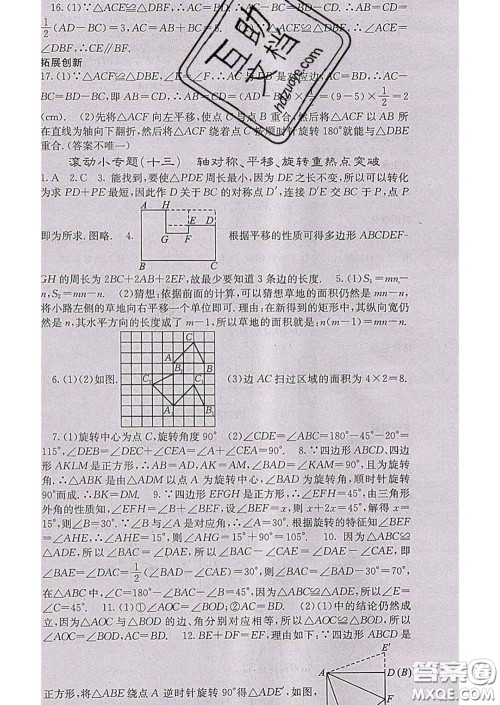 16.(1)∵△ACE≌△DBF,∴AC=DB,∴AB=CD=
1/2(AD-BC)=3. (2)∵△ACE≌△DBF,∴∠ACE
=∠DBF,∴CE∥BF.
拓展创新
17.(1)∵△ACF≌△DBE,∠E=∠F,∴AC与DB是对应边,∴AC-
BC=DB-BC,即AB=CD,∴AB=1/2(AD-BC)=1/2×(9-5)=1/2×4=2
(cm). (2)先将△ACF向左平移,使点C与点B重合,然后将△ACF以AB所
在直线为轴向下翻折,然后将△ACF绕着点C按顺时针旋转180°就能与△DBE
重合.(答案不唯一)
滚动小专题(十三) 轴对称、平移、旋转重热点突破
1.A 2.C 3. 能找到,要使△PDE周长最小,因为DE之长不变,所以可以转化
为求PD+PE最短,因此作D关于BC的对称点D′,连接D′E交BC于P,点P
即为所求.图略. 4.
A H
E D
G F
B C
根据平移的性质可得多边形ABCDEF-
GH的周长为2BC+2AB+2EF,故最少要知道3条边的长度. 5.(1)S₁=mn-
n,S₂=mn-n. (2)猜想:依据前面的计算,可以猜想草地的面积仍然是mn-n,
将小路左侧的草地向右平移一个单位即可.理由:在新得到的矩形中,其纵向宽仍
然是n,其水平方向的长度成了m-1,所以草地的面积就是:n(m-1)=mn-n.
6.(1)(2)如图.
(3)边AC扫过区域的面积为4×2=8.
7.(1)旋转中心为点C,旋转角度90° (2)∠CDE=∠CAB=180°-45°-20°=
115°,∠DEB=∠DEC+∠CEA=∠A+∠CEA=90°. 8.∵四边形ABCD、四边
形AKLM是正方形,∴AB=AD,AK=AM,∠BAD=∠KAM=90°,且为旋转
角.∴△ABK是由△ADM以点A为旋转中心,∠BAD为旋转角,顺时针旋转
90°而成.∴BK=DM. 9.∵四边形EFGH是正方形,∴∠EFH=45°,由三角形
外角的性质知,∠EFH=∠BEF+∠ABF,设∠BEF=x,则x+2x=45°,解得x
=15°,所以∠BEF=15°.∵∠BEF与∠A是对应角,∴∠A=30°.根据旋转的特征知∠BEF
=∠AHE,∴∠AHE=15°,则∠AHG=∠AHE+90°=105°. 10. 因为△ABC≌
△ADE,所以∠BAC=∠DAE,所以∠BAC-∠DAC=∠DAE-∠DAC,即
∠BAE=∠DAC=1/2(∠BAD-∠DAE)=30°,所以∠BAC=∠BAD-30°=70°,
在△ABC中,∠C=180°-∠BAC-∠B=45°,因为△ABC≌△ADE,所以∠E=
∠C=45°. 11.(1)①∠AOC=∠BOD;②AC=BD. (2)(1)中的结论仍然成
立,因为△OAB与△OCD的边、角分别对应相等,所以∠AOC=∠BOD,所以
△AOC≌△BOD,所以AC=BD. 12.BE+DF=EF,理由如下:∵四边形ABCD是
正方形,将△ABE绕点A逆时针旋转90°得△ADE′,如图,
E′
A D(B)
F
互助文档
hdzuoye.com
答案圈
MXQE.COM